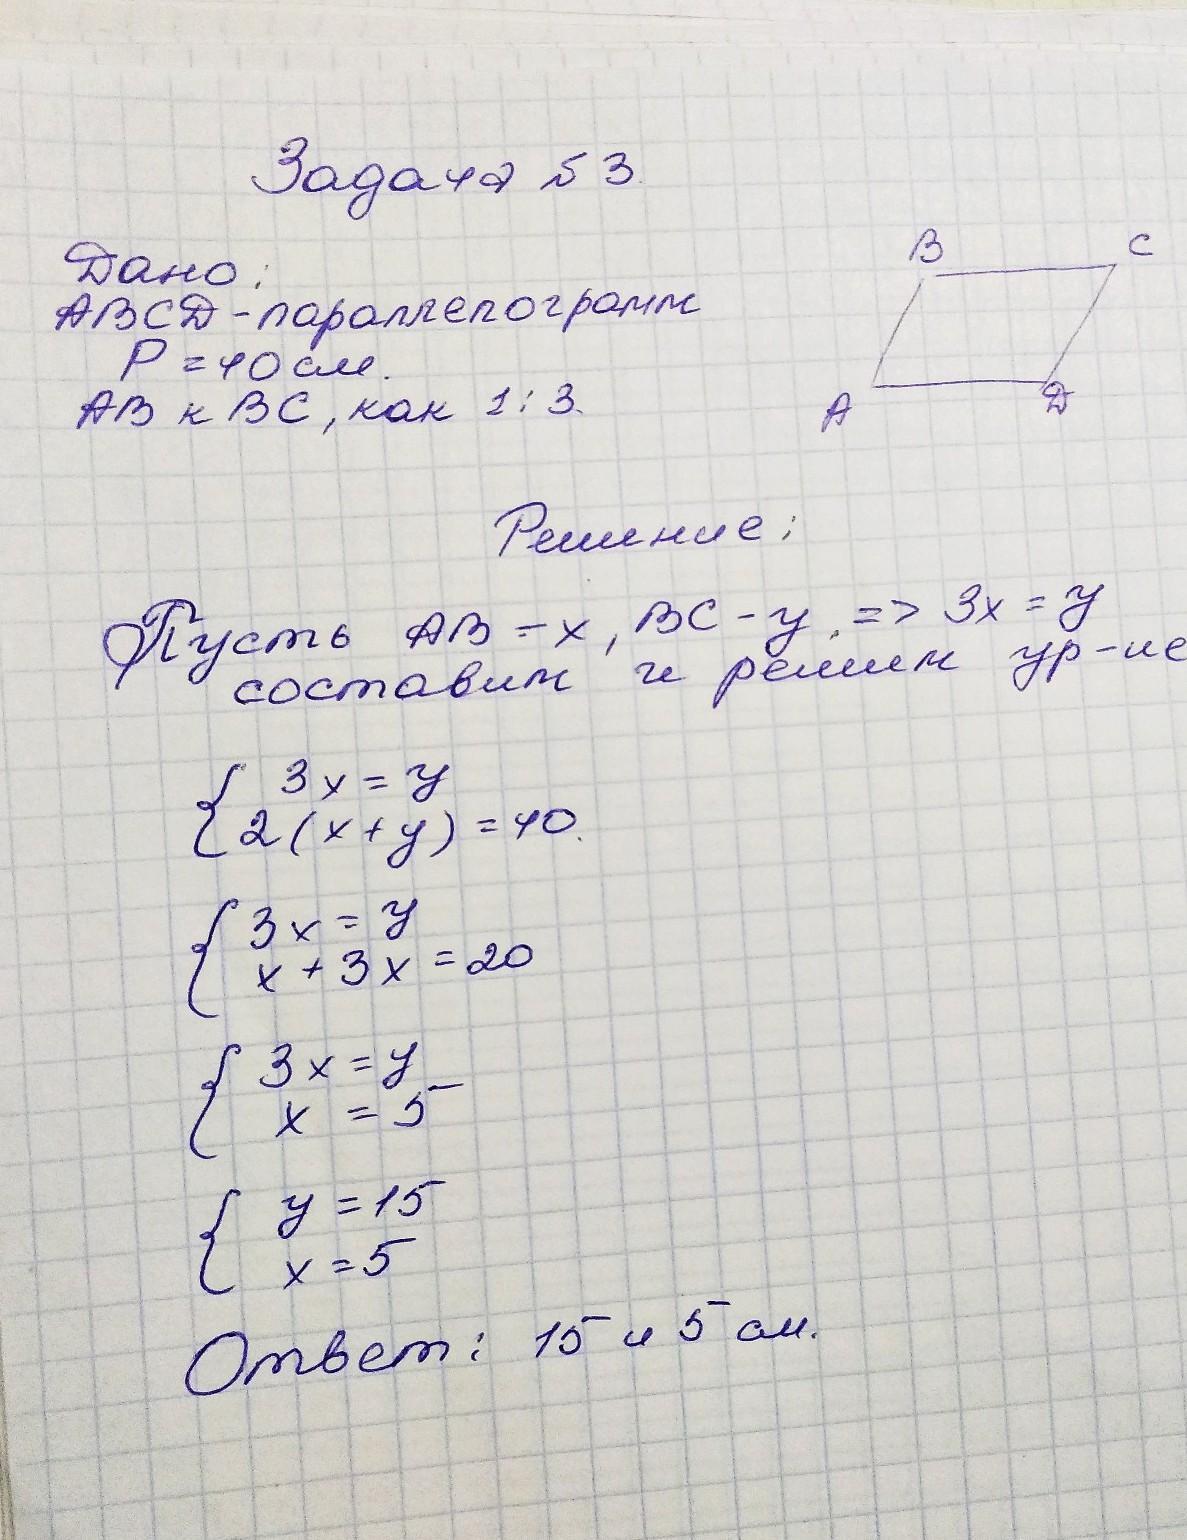 Задача №3.
Дано:
ABCD - параллелограмм
P = 40 см.
AB к BC, как 1:3.
B
C
A
D
Решение:
Пусть AB - x, BC - y, => 3x = y
составим и решим ур-ие
{ 3x = y
2(x+y) = 40.
{ 3x = y
x + 3x = 20
{ 3x = y
x = 5
{ y = 15
x = 5
Ответ: 15 и 5 см.